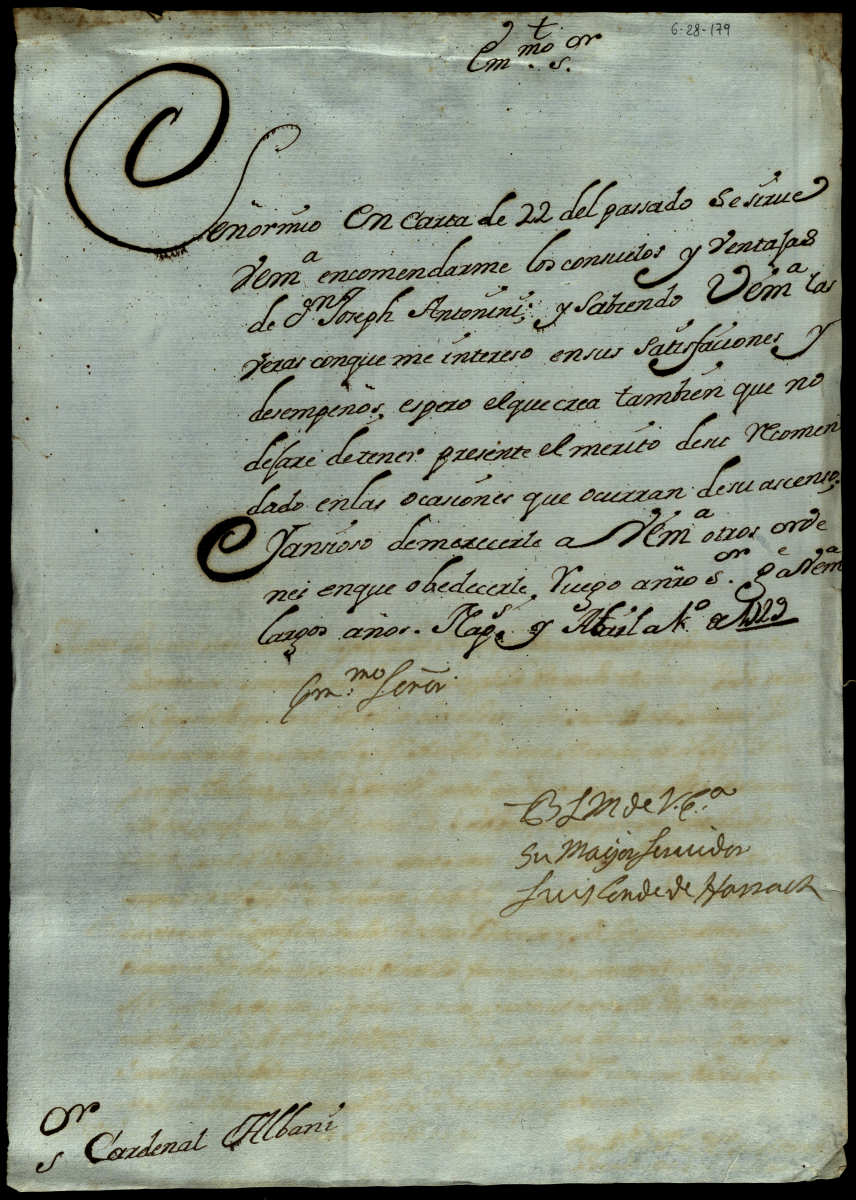 6-28-179
†
Em.mo s.or
Señor mio En Carta de 22 del passado Se sirue
Vem.a encomendarme los consuelos y Ventajas
de Dn Joseph Antonini; y Sabiendo Vem.a las
Veras conque me intereso en sus Satisfaciones y
desempeños, espero el que crea tambien que no
dejare detener presente el merito desu recomen
dado en las ocasiones que ocurran desu ascenso,
Y ansioso demerecerle a Vem.a otros orde
nes enque obedecerle, Ruego a ñro s.or g.e a Vem.a
largos años. Nap.s y Abril a 1.o de 1729
Em.mo Señor
B L M de V. E.a
Su Mayor Seruidor
Luis Conde de Harrach
s.or Cardenal Albani